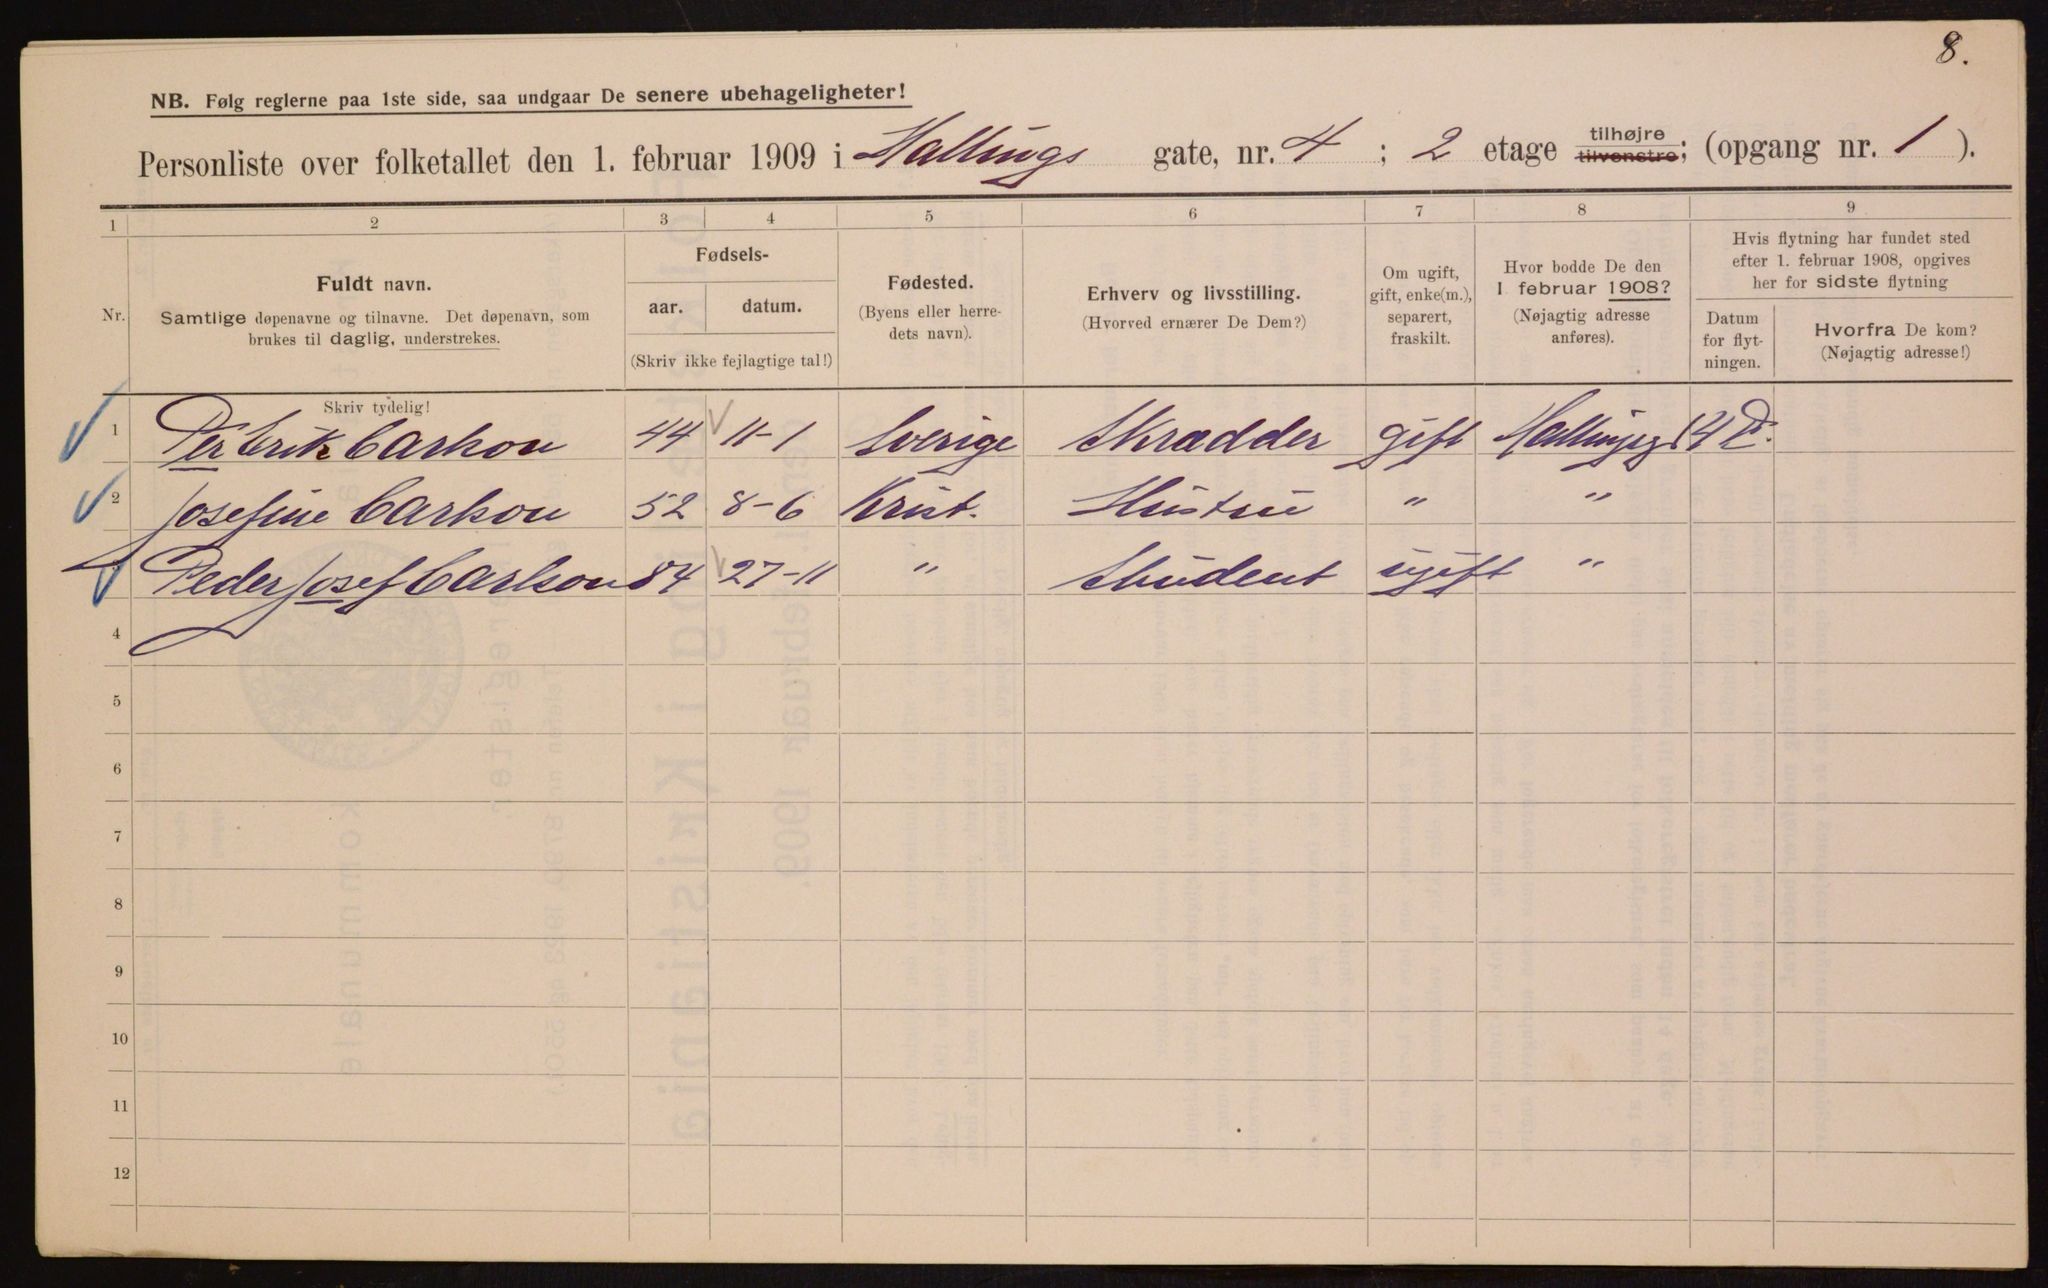 8.
NB. Følg reglerne paa 1ste side, saa undgaar De senere ubehageligheter!
Personliste over folketallet den 1. februar 1909 i Hallings gate, nr. 4 ; 2 etage tilhøjre tilvenstre; (opgang nr. 1 ).
1 2 3 4 5 6 7 8 9
Nr.
Fuldt navn.
Samtlige døpenavne og tilnavne. Det døpenavn, som
brukes til daglig, understrekes.
Fødsels-
aar. datum.
(Skriv ikke fejlagtige tal!)
Fødested.
(Byens eller herre-
dets navn).
Erhverv og livsstilling.
(Hvorved ernærer De Dem?)
Om ugift,
gift, enke(m.),
separert,
fraskilt.
Hvor bodde De den
1 februar 1908?
(Nøjagtig adresse
anføres).
Hvis flytning har fundet sted
efter 1. februar 1908, opgives
her for sidste flytning
Datum
for flyt-
ningen.
Hvorfra De kom?
(Nøjagtig adresse!)
Skriv tydelig!
1 Per Erik Carlson 44 11-1 Sverige Skrædder gift Hallingsg 4
2 Josefine Carlson 52 8-6 Krist. Hustru " "
Peder Josef Carlson 84 27-11 " Student ugift "
4
5
6
7
8
9
10
11
12